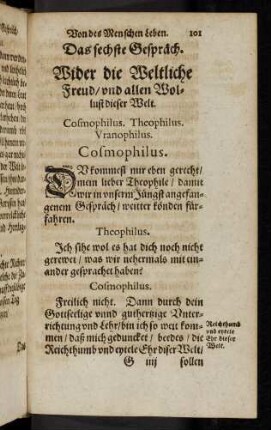 Von des Menschen Leben. 101
Das sechste Gespräch.
Wider die Weltliche
Freud/ vnd allen Wol-
lust dieser Welt.
Cosmophilus. Theophilus.
Vranophilus.
Cosmophilus.
DV kommest nur eben gerecht/
mein lieber Theophile/ damit
wir in vnserm Jüngst angefan-
genem Gespräch/ weitter könden für-
fahren.
Theophilus.
Ich sihe wol es hat dich noch nicht
gerewet/ was wir nehermals mit ein-
ander gesprachet haben?
Cosmophilus.
Freilich nicht. Dann durch dein
Gottselige vnnd guthertzige Vnter-
richtung vnd Lehr/ bin ich so weit kom-
men/ daß mich geduncket/ beedes/ die
Reichthumb vnd eytele Ehr diser Welt/
Reichthumb
vnd eytele
Ehr dieser
Welt.
G iiij sollen